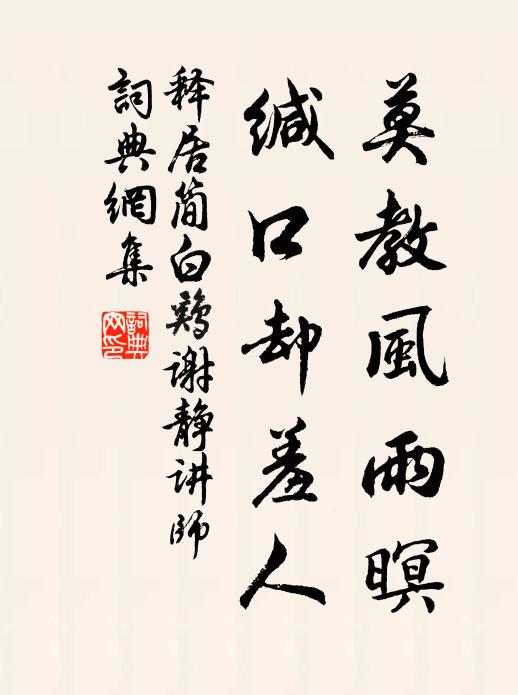 莫教風雨暝
緘口却羞人
释居简白鷄谢静讲师
詞典網集
詞典網印